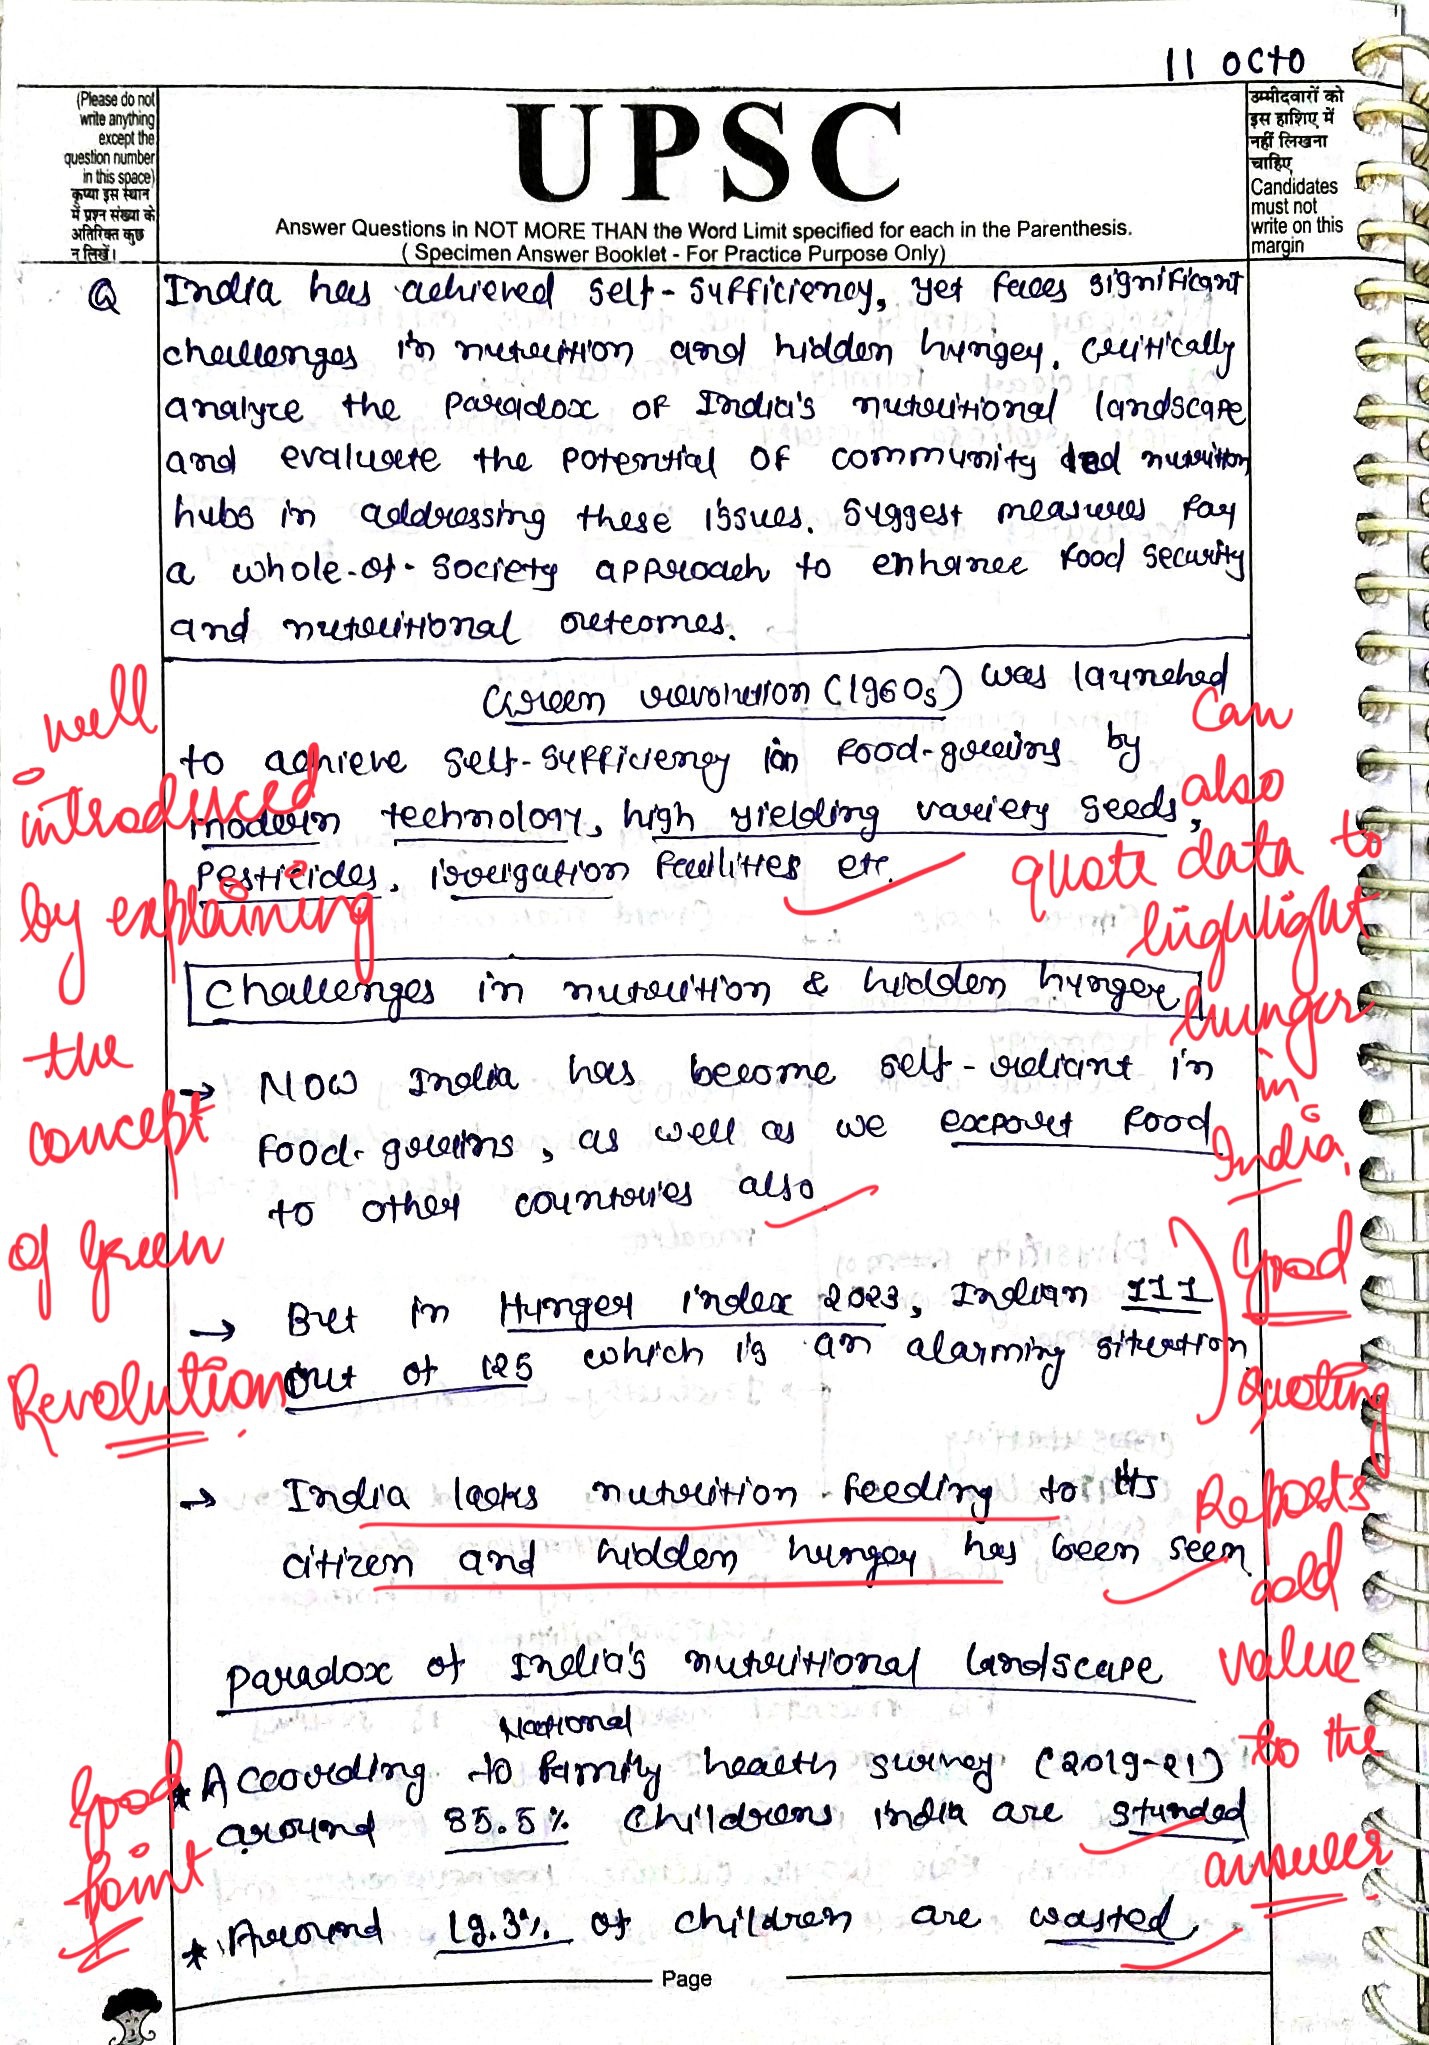 11 OCTO
(Please do not
write anything
except the
question number
in this space)
कृप्या इस स्थान
में प्रश्न संख्या के
अतिरिक्त कुछ
न लिखें।
UPSC
Answer Questions in NOT MORE THAN the Word Limit specified for each in the Parenthesis.
( Specimen Answer Booklet - For Practice Purpose Only)
उम्मीदवारों को
इस हाशिए में
नहीं लिखना
चाहिए
Candidates
must not
write on this
margin
Q India has achieved self-sufficiency, yet faces significant
challenges in nutrition and hidden hunger. Critically
analyze the paradox of India's nutritional landscape
and evaluate the potential of community led nutrition
hubs in addressing these issues. Suggest measures for
a whole-of-society approach to enhance food security
and nutritional outcomes.
Green revolution (1960s) was launched
to achieve self-sufficiency in food-grains by
modern technology, high yielding variety seeds,
pesticides, irrigation facilities etc.
well
introduced
by explaining
the
concept
of Green
Revolution.
Can
also
quote data to
highlight
hunger
in
India.
Challenges in nutrition & hidden hunger
→ Now India has become self-reliant in
food-grains, as well as we export food
to other countries also
→ But in Hunger index 2023, Indian 111
out of 125 which is an alarming situation.
→ India lacks nutrition feeding to its
citizen and hidden hunger has been seen
Good
quoting
Reports
add
value
to the
answer.
Paradox of India's nutritional landscape
National
* According to family health survey (2019-21)
around 35.5% childrens india are stunded
* Around 19.3% of children are wasted
Good
point
Page